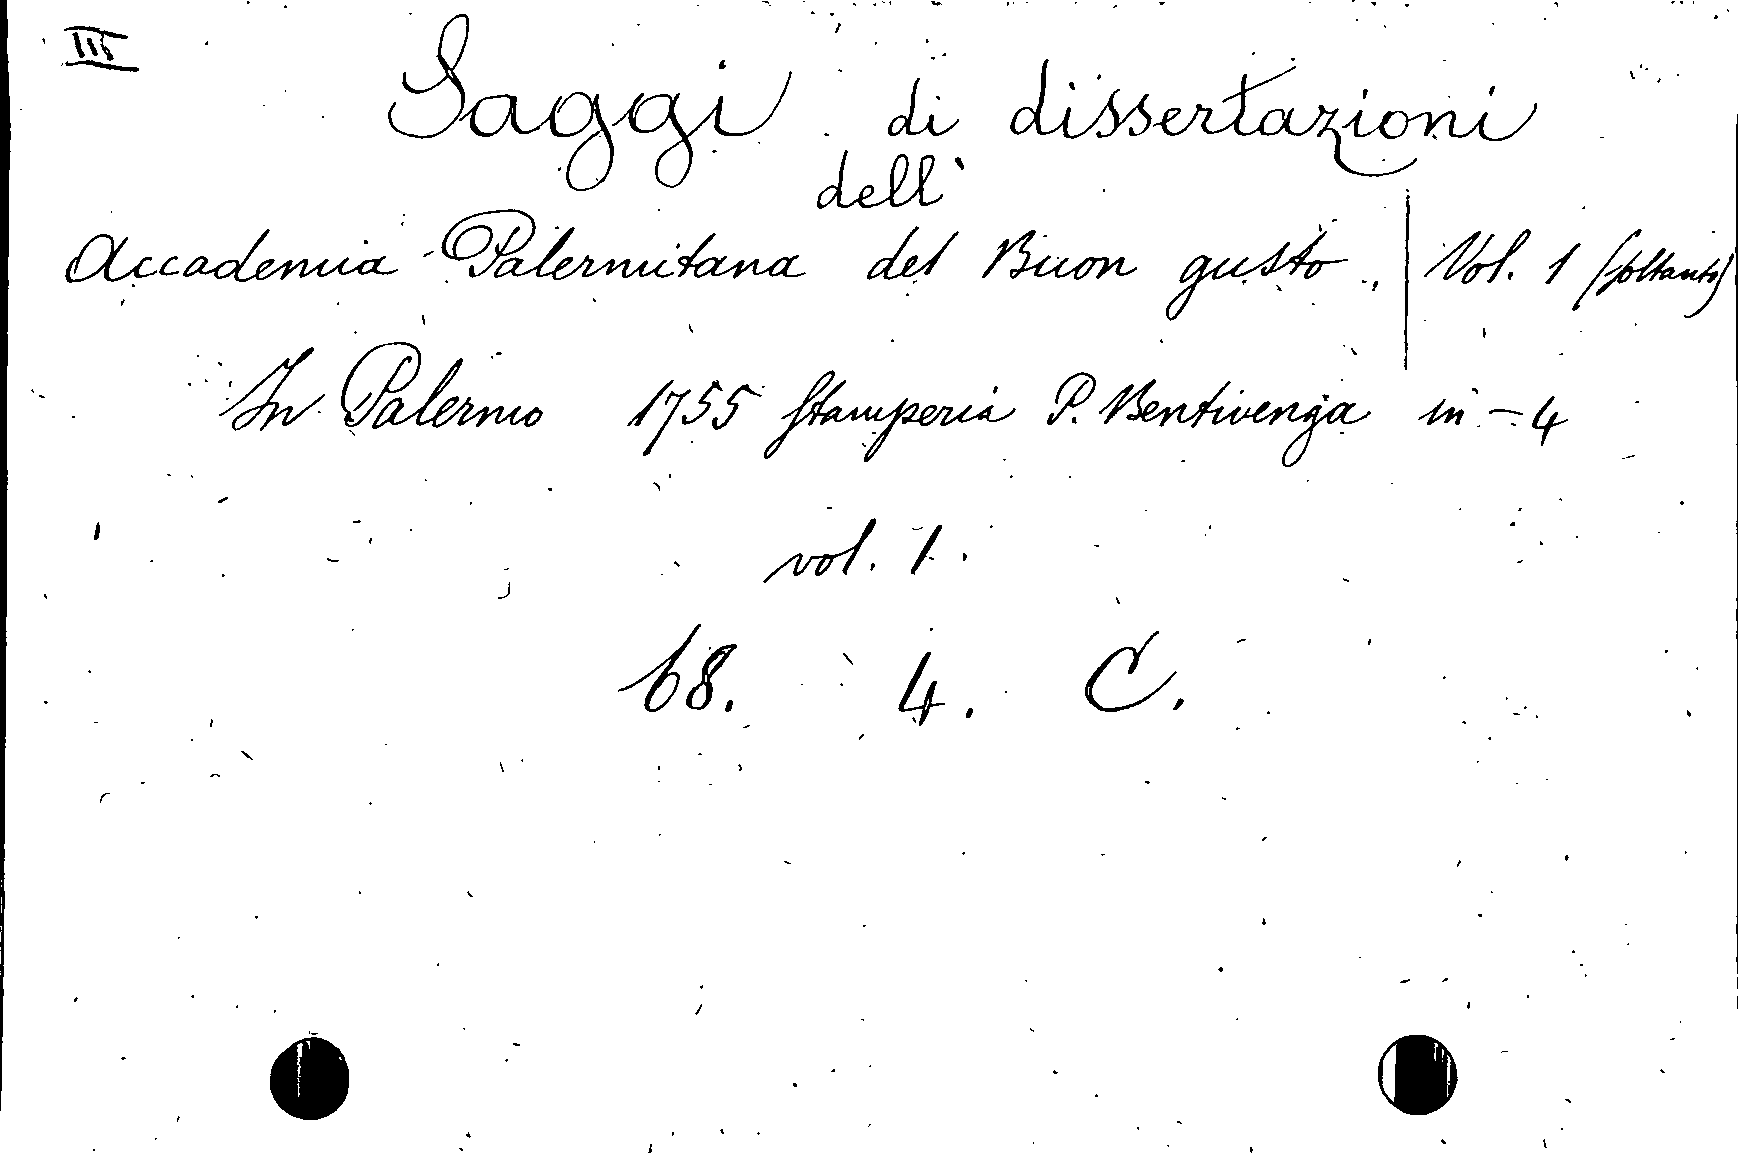 III
Saggi di dissertazioni
dell'
Accademia Palermitana del Buon gusto. | Vol. 1 (soltanto)
In Palermo 1755 Stamperia P. Bentivenga in-4
vol. 1.
68. 4. C.